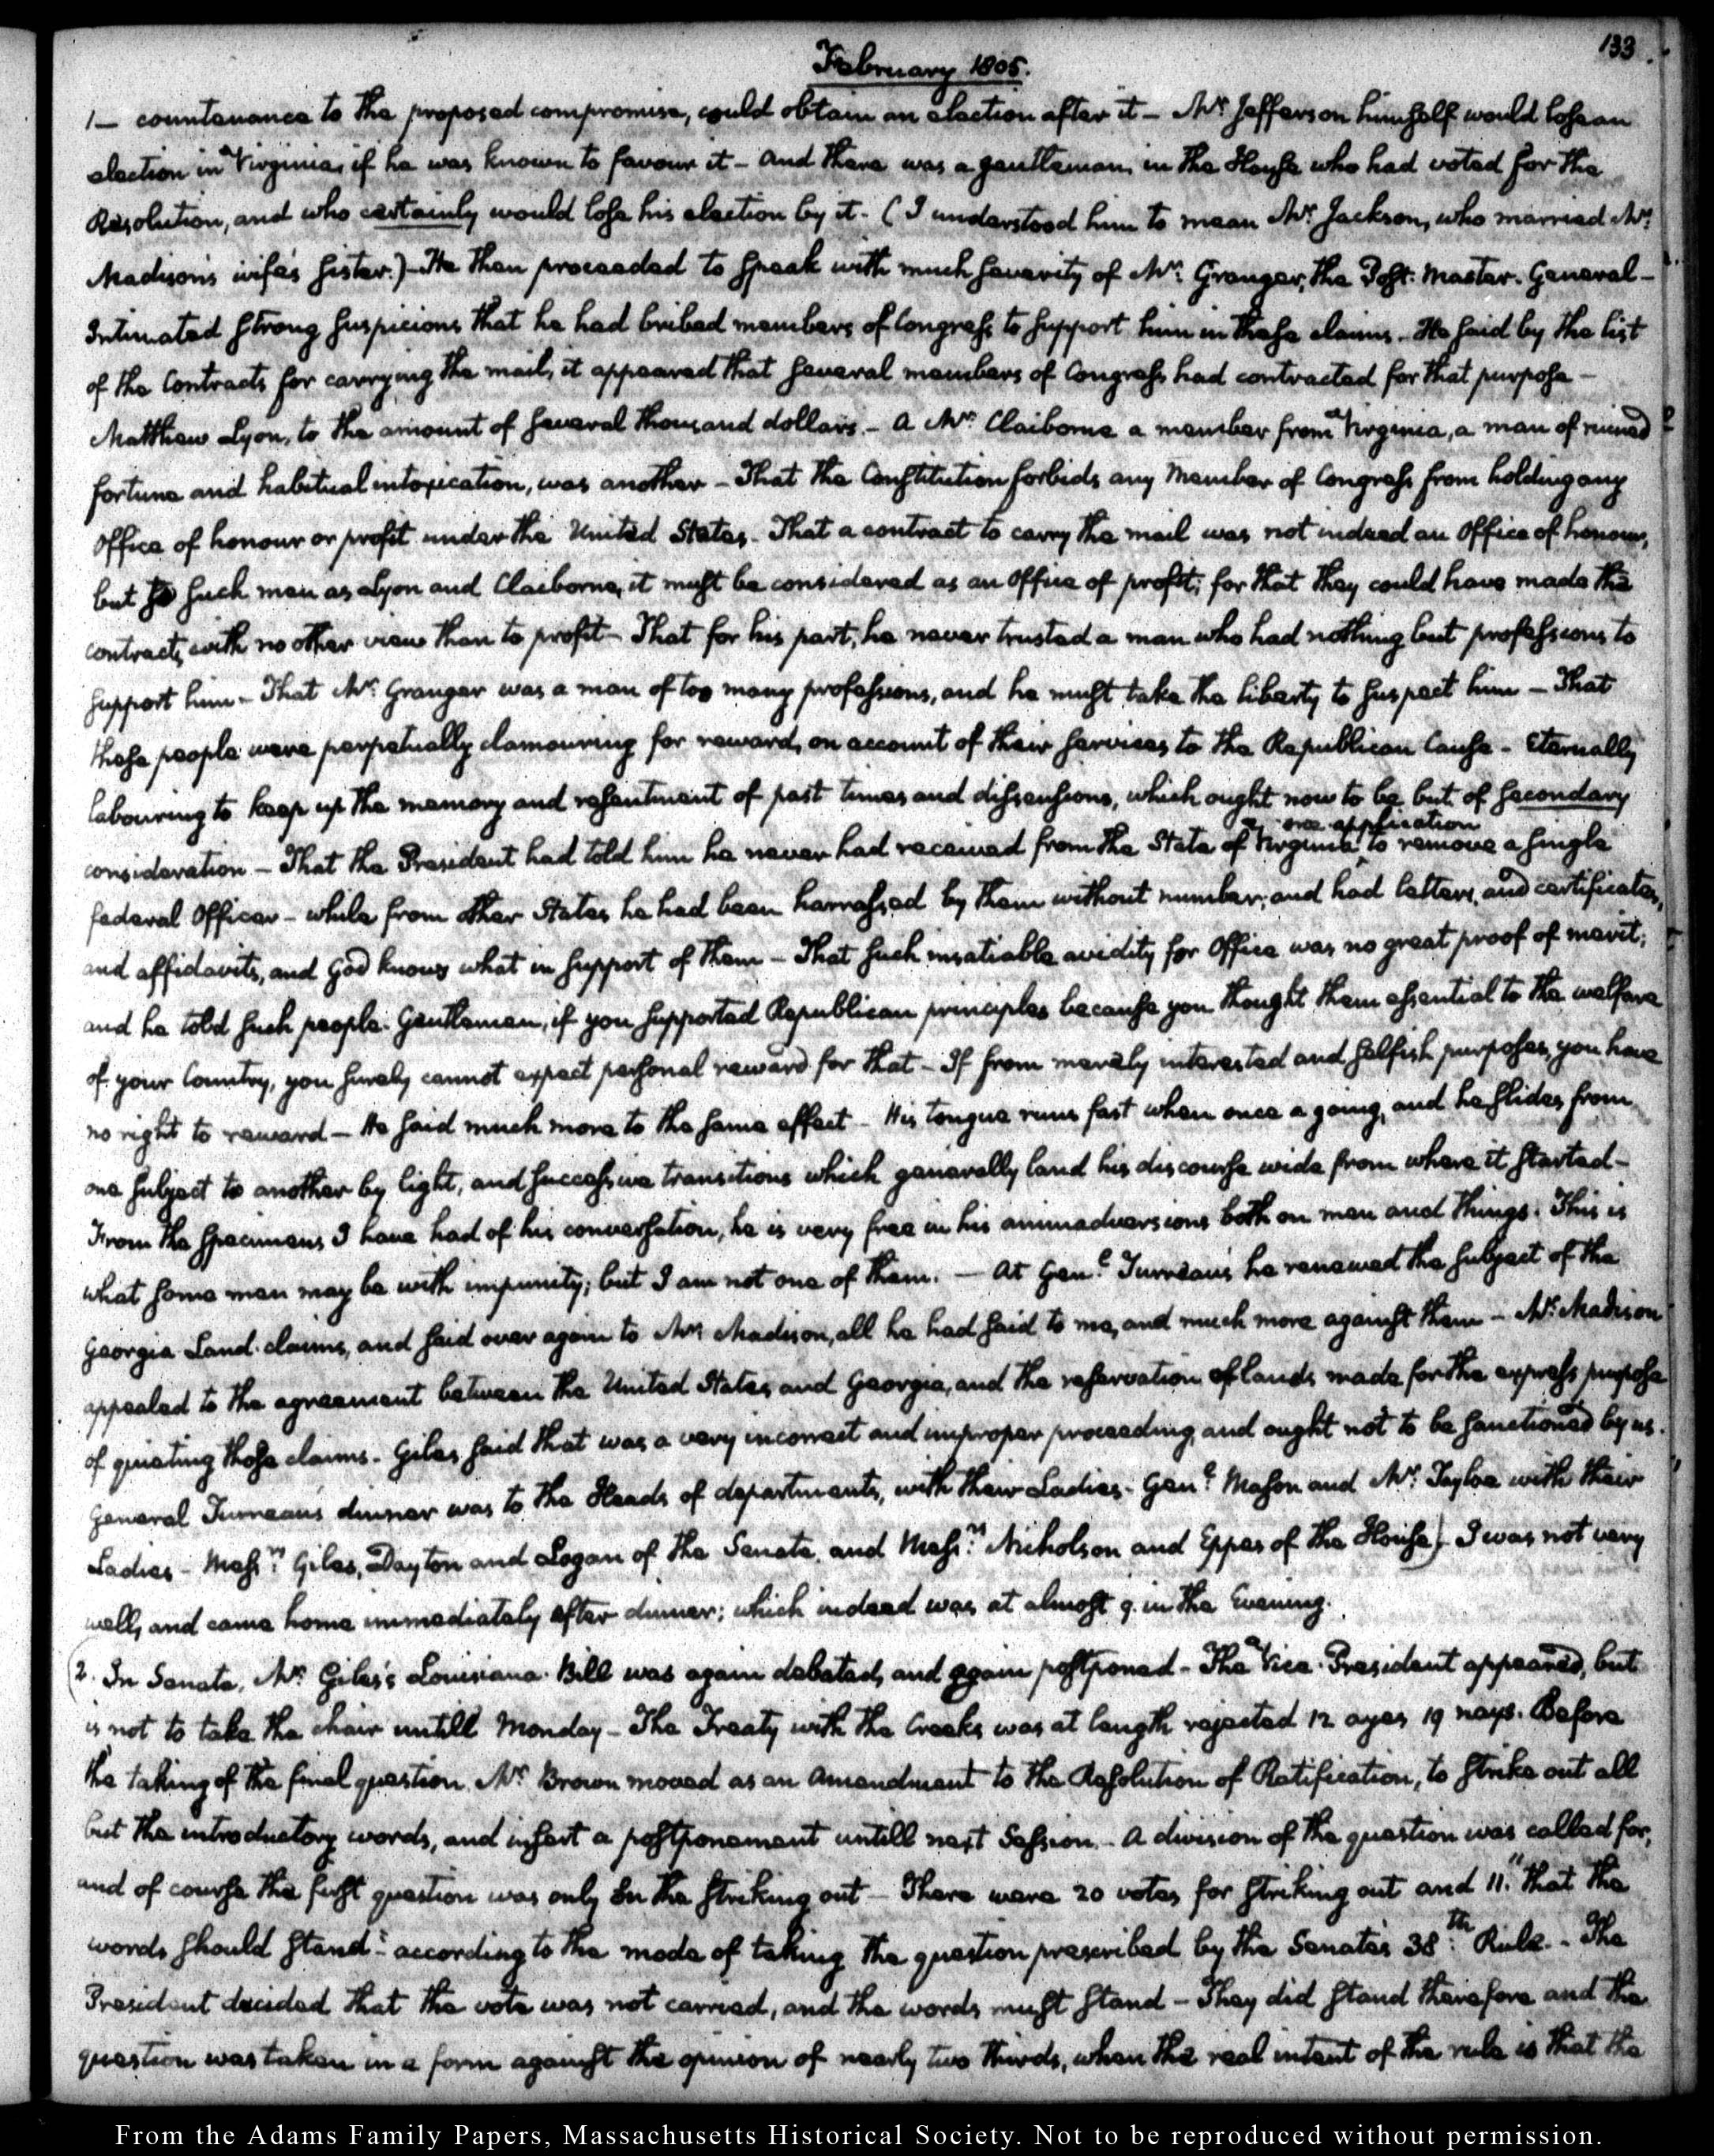 133.
February 1805.
1— countenance to the proposed compromise, could obtain an election after it — Mr: Jefferson himself would lose an
election in Virginia, if he was known to favour it — and there was a gentleman, in the House who had voted for the
Resolution, and who certainly would lose his election by it. (I understood him to mean Mr: Jackson, who married Mrs:
Madison's wife's sister.) — He then proceeded to speak with much severity of Mr: Granger, the Post-Master-General —
Intimated strong suspicions that he had bribed members of Congress to support him in these claims. He said by the list
of the Contracts for carrying the mail, it appeared that several members of Congress had contracted for that purpose —
Matthew Lyon, to the amount of several thousand dollars. — A Mr: Claiborne a member from Virginia, a man of ruined
fortune and habitual intoxication, was another — That the Constitution forbids any Member of Congress from holding any
Office of honour or profit under the United States. That a contract to carry the mail was not indeed an Office of honour,
but to such men as Lyon and Claiborne, it must be considered as an Office of profit; for that they could have made the
contracts, with no other view than to profit — That for his part, he never trusted a man who had nothing but professions to
support him — That Mr: Granger was a man of too many professions, and he must take the liberty to suspect him — That
these people were perpetually clamouring for reward, on account of their services, to the Republican Cause — Eternally
labouring to keep up the memory and resentment of past times and dissensions, which ought now to be but of secondary
consideration — That the President had told him he never had received from the State of Virginia one application to remove a single
federal Officer — while from other States he had been harrassed by them without number; and had letters, and certificates,
and affidavits, and God knows what in support of them — That such insatiable avidity for Office was no great proof of merit;
and he told such people. Gentlemen, if you supported Republican principles because you thought them essential to the welfare
of your Country, you surely cannot expect personal reward for that — If from merely interested and selfish purposes, you have
no right to reward — He said much more to the same effect — His tongue runs fast when once a going, and he slides from
one subject to another by light, and successive transitions which generally land his discourse wide from where it started —
From the specimens I have had of his conversation, he is very free in his animadversions both on men and things. This is
what some men may be with impunity; but I am not one of them. — At Genl: Turreau's he renewed the subject of the
Georgia Land-claims, and said over again to Mr: Madison, all he had said to me, and much more against them — Mr: Madison
appealed to the agreement between the United States and Georgia, and the reservation of lands made for the express purpose
of quieting those claims. Giles said that was a very incorrect and improper proceeding, and ought not to be sanctioned by us.
General Turreau's dinner was to the Heads of departments, with their Ladies. Genl: Mason and Mr: Tayloe with their
Ladies — Messrs: Giles, Dayton and Logan of the Senate, and Messrs: Nicholson and Eppes of the House) I was not very
well, and came home immediately after dinner; which indeed was at almost 9. in the Evening.
2. In Senate, Mr: Giles's Louisiana Bill was again debated, and again postponed — The Vice-President appeared, but
is not to take the chair untill Monday — The Treaty with the Creeks was at length rejected 12 ayes 19 nays. Before
the taking of the final question, Mr: Brown moved as an Amendment to the Resolution of Ratification, to strike out all
but the introductory words, and insert a postponement untill next Session. — A division of the question was called for,
and of course the first question was only on the striking out — There were 20 votes for striking out and 11. "that the
words should stand": according to the mode of taking the question prescribed by the Senate's 38:th Rule. — The
President decided that the vote was not carried, and the words must stand — They did stand therefore and the
question was taken in a form against the opinion of nearly two thirds, when the real intent of the rule is that the
From the Adams Family Papers, Massachusetts Historical Society. Not to be reproduced without permission.